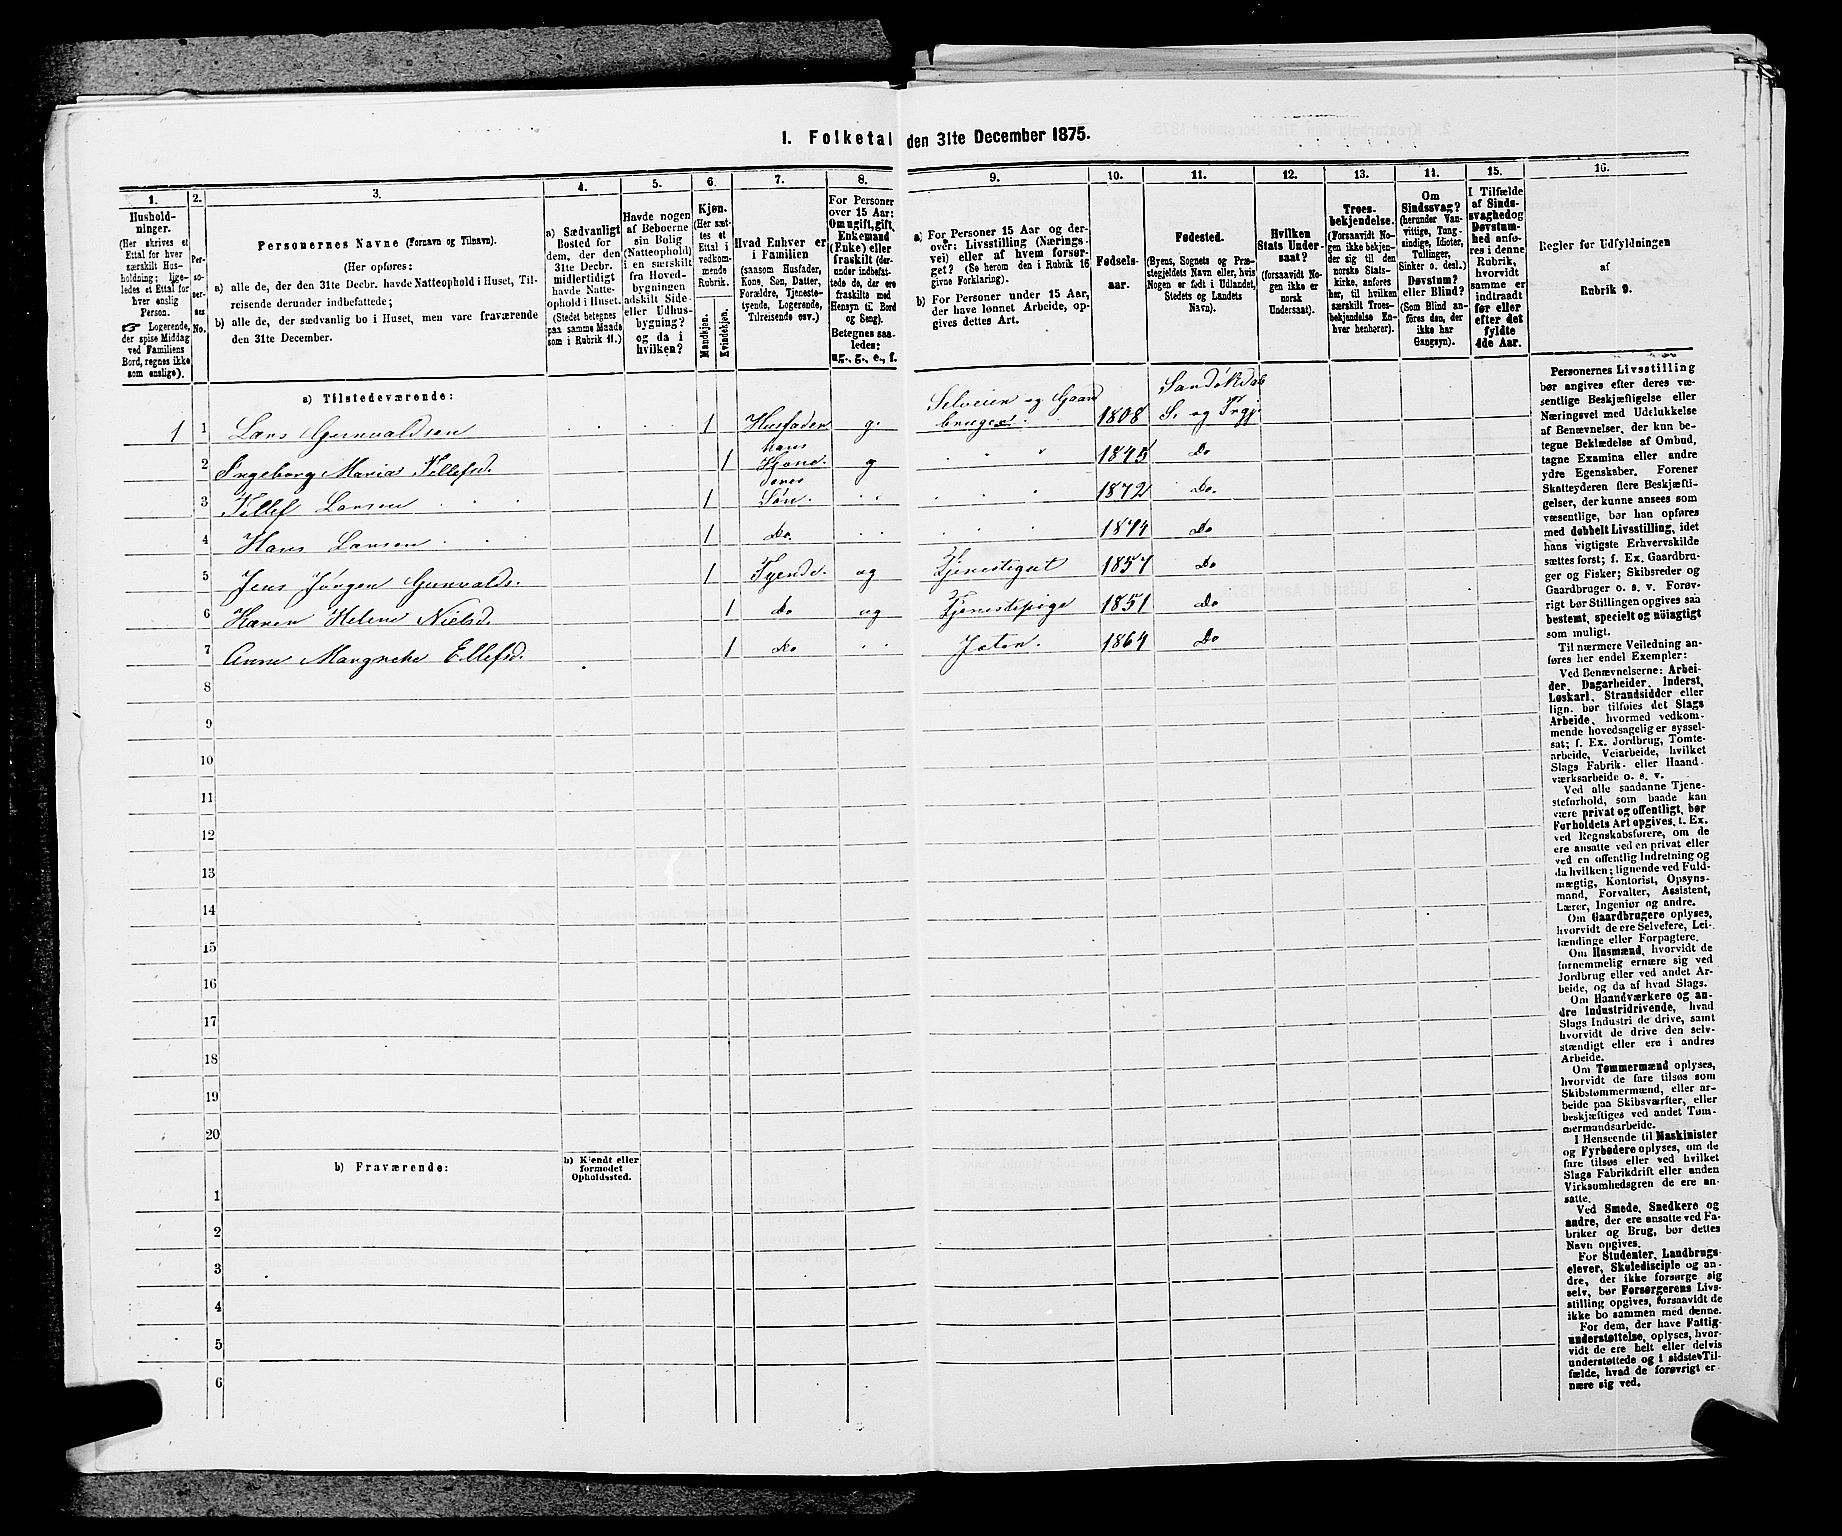 1. Folketal den 31te December 1875.
1. 2. 3. 4. 5. 6. 7. 8. 9. 10. 11. 12. 13. 14. 15. 16.
Hushold-
ninger.
(Her skrives et
Ettal for hver
særskilt Hus-
holdning; lige-
ledes et Ettal for
hver enslig
Person.
☞ Logerende,
der spise Middag
ved Familiens
Bord, regnes ikke
som enslige).
Per-
so-
ner-
nes
No.
Personernes Navne (Fornavn og Tilnavn).
(Her opføres:
a) alle de, der den 31te Decbr. havde Natteophold i Huset, Til-
reisende derunder indbefattede;
b) alle de, der sædvanlig bo i Huset, men vare fraværende
den 31te December.
a) Sædvanligt
Bosted for
dem, der den
31te Decbr.
midlertidigt
havde Natte-
ophold i Huset.
(Stedet betegnes
paa samme Maade
som i Rubrik 11.)
Havde nogen
af Beboerne
sin Bolig
(Natteophold)
i en særskilt
fra Hoved-
bygningen
adskilt Side-
eller Udhus-
bygning?
og da i
hvilken?
Kjøn.
(Her sæt-
tes et
Ettal i
vedkom-
mende
Rubrik.
Mandkjøn.
Kvindekjøn.
Hvad Enhver er
i Familien
(saasom Husfader,
Kone, Søn, Datter,
Forældre, Tjeneste-
tyende, Logerende,
Tilreisende osv.)
For Personer
over 15 Aar:
Om ugift, gift,
Enkemand
(Enke) eller
fraskilt (der-
under indbefat-
tede de, der ere
fraskilte med
Hensyn til Bord
og Seng).
Betegnes saa-
ledes:
ug., g., e., f.
a) For Personer 15 Aar og der-
over: Livsstilling (Nærings-
vei) eller af hvem forsør-
get? (Se herom den i Rubrik 16
givne Forklaring).
b) For Personer under 15 Aar,
der have lønnet Arbeide, op-
gives dettes Art.
Fødsels-
aar.
Fødested.
(Byens, Sognets og Præ-
stegjeldets Navn eller, hvis
Nogen er født i Udlandet,
Stedets og Landets
Navn).
Hvilken
Stats Under-
saat?
(forsaavidt No-
gen ikke er
norsk
Undersaat).
Troes-
bekjendelse.
(Forsaavidt No-
gen ikke bekjen-
der sig til den
norske Stats-
kirke, anføres
her, til hvilken
særskilt Troes-
bekjendelse En-
hver henhører).
Om
Sindssvag?
(herunder Van-
vittige, Tung-
sindige, Idioter,
Tullinger,
Sinker o. desl.)
Døvstum?
eller Blind?
(Som Blind an-
føres den, der
ikke har
Gangsyn).
I Tilfælde
af Sinds-
svaghed og
Døvstum-
hed anfø-
res i denne
Rubrik,
hvorvidt
samme er
indtraadt
før eller
efter det
fyldte
4de Aar.
Regler før Udfyldningen
af
Rubrik 9.
a) Tilstedeværende:
1 1 Lars Gunvaldsen 1 Husfader g. Selveier og Gaardbruger. 1808 Sandøkedal S. og Prgj.
2 Ingeborg Maria Tellefsd. 1 hans Kone. g 1843 Do
3 Tellef Larsen 1 deres Søn. 1872 Do.
4 Hans Larsen 1 Do. 1874 Do
5 Jens Jørgen Gunvalds. 1 Tyende. ug Tjenestegut 1857 Do
6 Karen Helene Nielsd. 1 Do ug Tjenestepige 1851 Do
7 Anne Margrethe Ellefsd. 1 Do 1864 Do
8
9
10
11
12
13
14
15
16
17
18
19
20
b) Fraværende:
b) Kjendt eller
formodet
Opholdssted.
1
2
3
4
5
6
Personernes Livsstilling
bør angives efter deres væ-
sentlige Beskjæftigelse eller
Næringsvei med Udelukkelse
af Benævnelser, der kun be-
tegne Beklædelse af Ombud,
tagne Examina eller andre
ydre Egenskaber. Forener
Skatteyderen flere Beskjæfti-
gelser, der kunne ansees som
væsentlige, bør han opføres
med dobbelt Livsstilling, idet
hans vigtigste Erhvervskilde
sættes først; f. Ex. Gaardbru-
ger og Fisker; Skibsreder og
Gaardbruger o. s. v. Forøv-
rigt bør Stillingen opgives saa
bestemt, specielt og nøiagtigt
som muligt.
Til nærmere Veiledning an-
føres her endel Exempler:
Ved Benævnelserne: Arbei-
der, Dagarbeider, Inderst,
Løskarl, Strandsidder eller
lign. bør tilføies det Slags
Arbeide, hvormed vedkom-
mende hovedsagelig er syssel-
sat; f. Ex. Jordbrug, Tomte-
arbeide, Veiarbeide, hvilket
Slags Fabrik- eller Haand-
værksarbeide o. s. v.
Ved alle saadanne Tjene-
steforhold, som baade kan
være privat og offentligt, bør
Forholdets Art opgives, t. Ex.
ved Regnskabsførere, om de
ere ansatte ved en privat eller
ved en offentlig Indretning og
da hvilken; lignende ved Fuld-
mægtig, Kontorist, Opsyns-
mand, Forvalter, Assistent,
Lærer, Ingeniør og andre.
Om Gaardbrugere oplyses,
hvorvidt de ere Selveiere, Lei-
lændinge eller Forpagtere.
Om Husmænd, hvorvidt de
fornemmelig ernære sig ved
Jordbrug eller ved andet Ar-
beide, og da af hvad Slags.
Om Haandværkere og an-
dre Industridrivende, hvad
Slags Industri de drive, samt
hvorvidt de drive den selv-
stændigt eller ere i andres
Arbeide.
Om Tømmermænd oplyses,
hvorvidt de fare tilsøs som
Skibstømmermænd, eller ar-
beide paa Skibsværfter, eller
beskjæftiges ved andet Tøm-
mermandsarbeide.
I Henseende til Maskinister
og Fyrbødere oplyses, om de
fare tilsøs eller ved hvilket
Slags Fabrikdrift eller anden
Virksomhedsgren de ere an-
satte.
Ved Smede, Snedkere og
andre, der ere ansatte ved Fa-
briker og Brug, bør dettes
Navn opgives.
For Studenter, Landbrugs-
elever, Skoledisciple og an-
dre, der ikke forsørge sig
selv, bør Forsørgerens Livs-
stilling opgives, forsaavidt de
ikke bo sammen med denne.
For dem, der have Fattig-
understøttelse, oplyses, hvor-
vidt de ere helt eller delvis
understøttede og i sidste Til-
fælde, hvad de forøvrigt er-
nære sig ved.